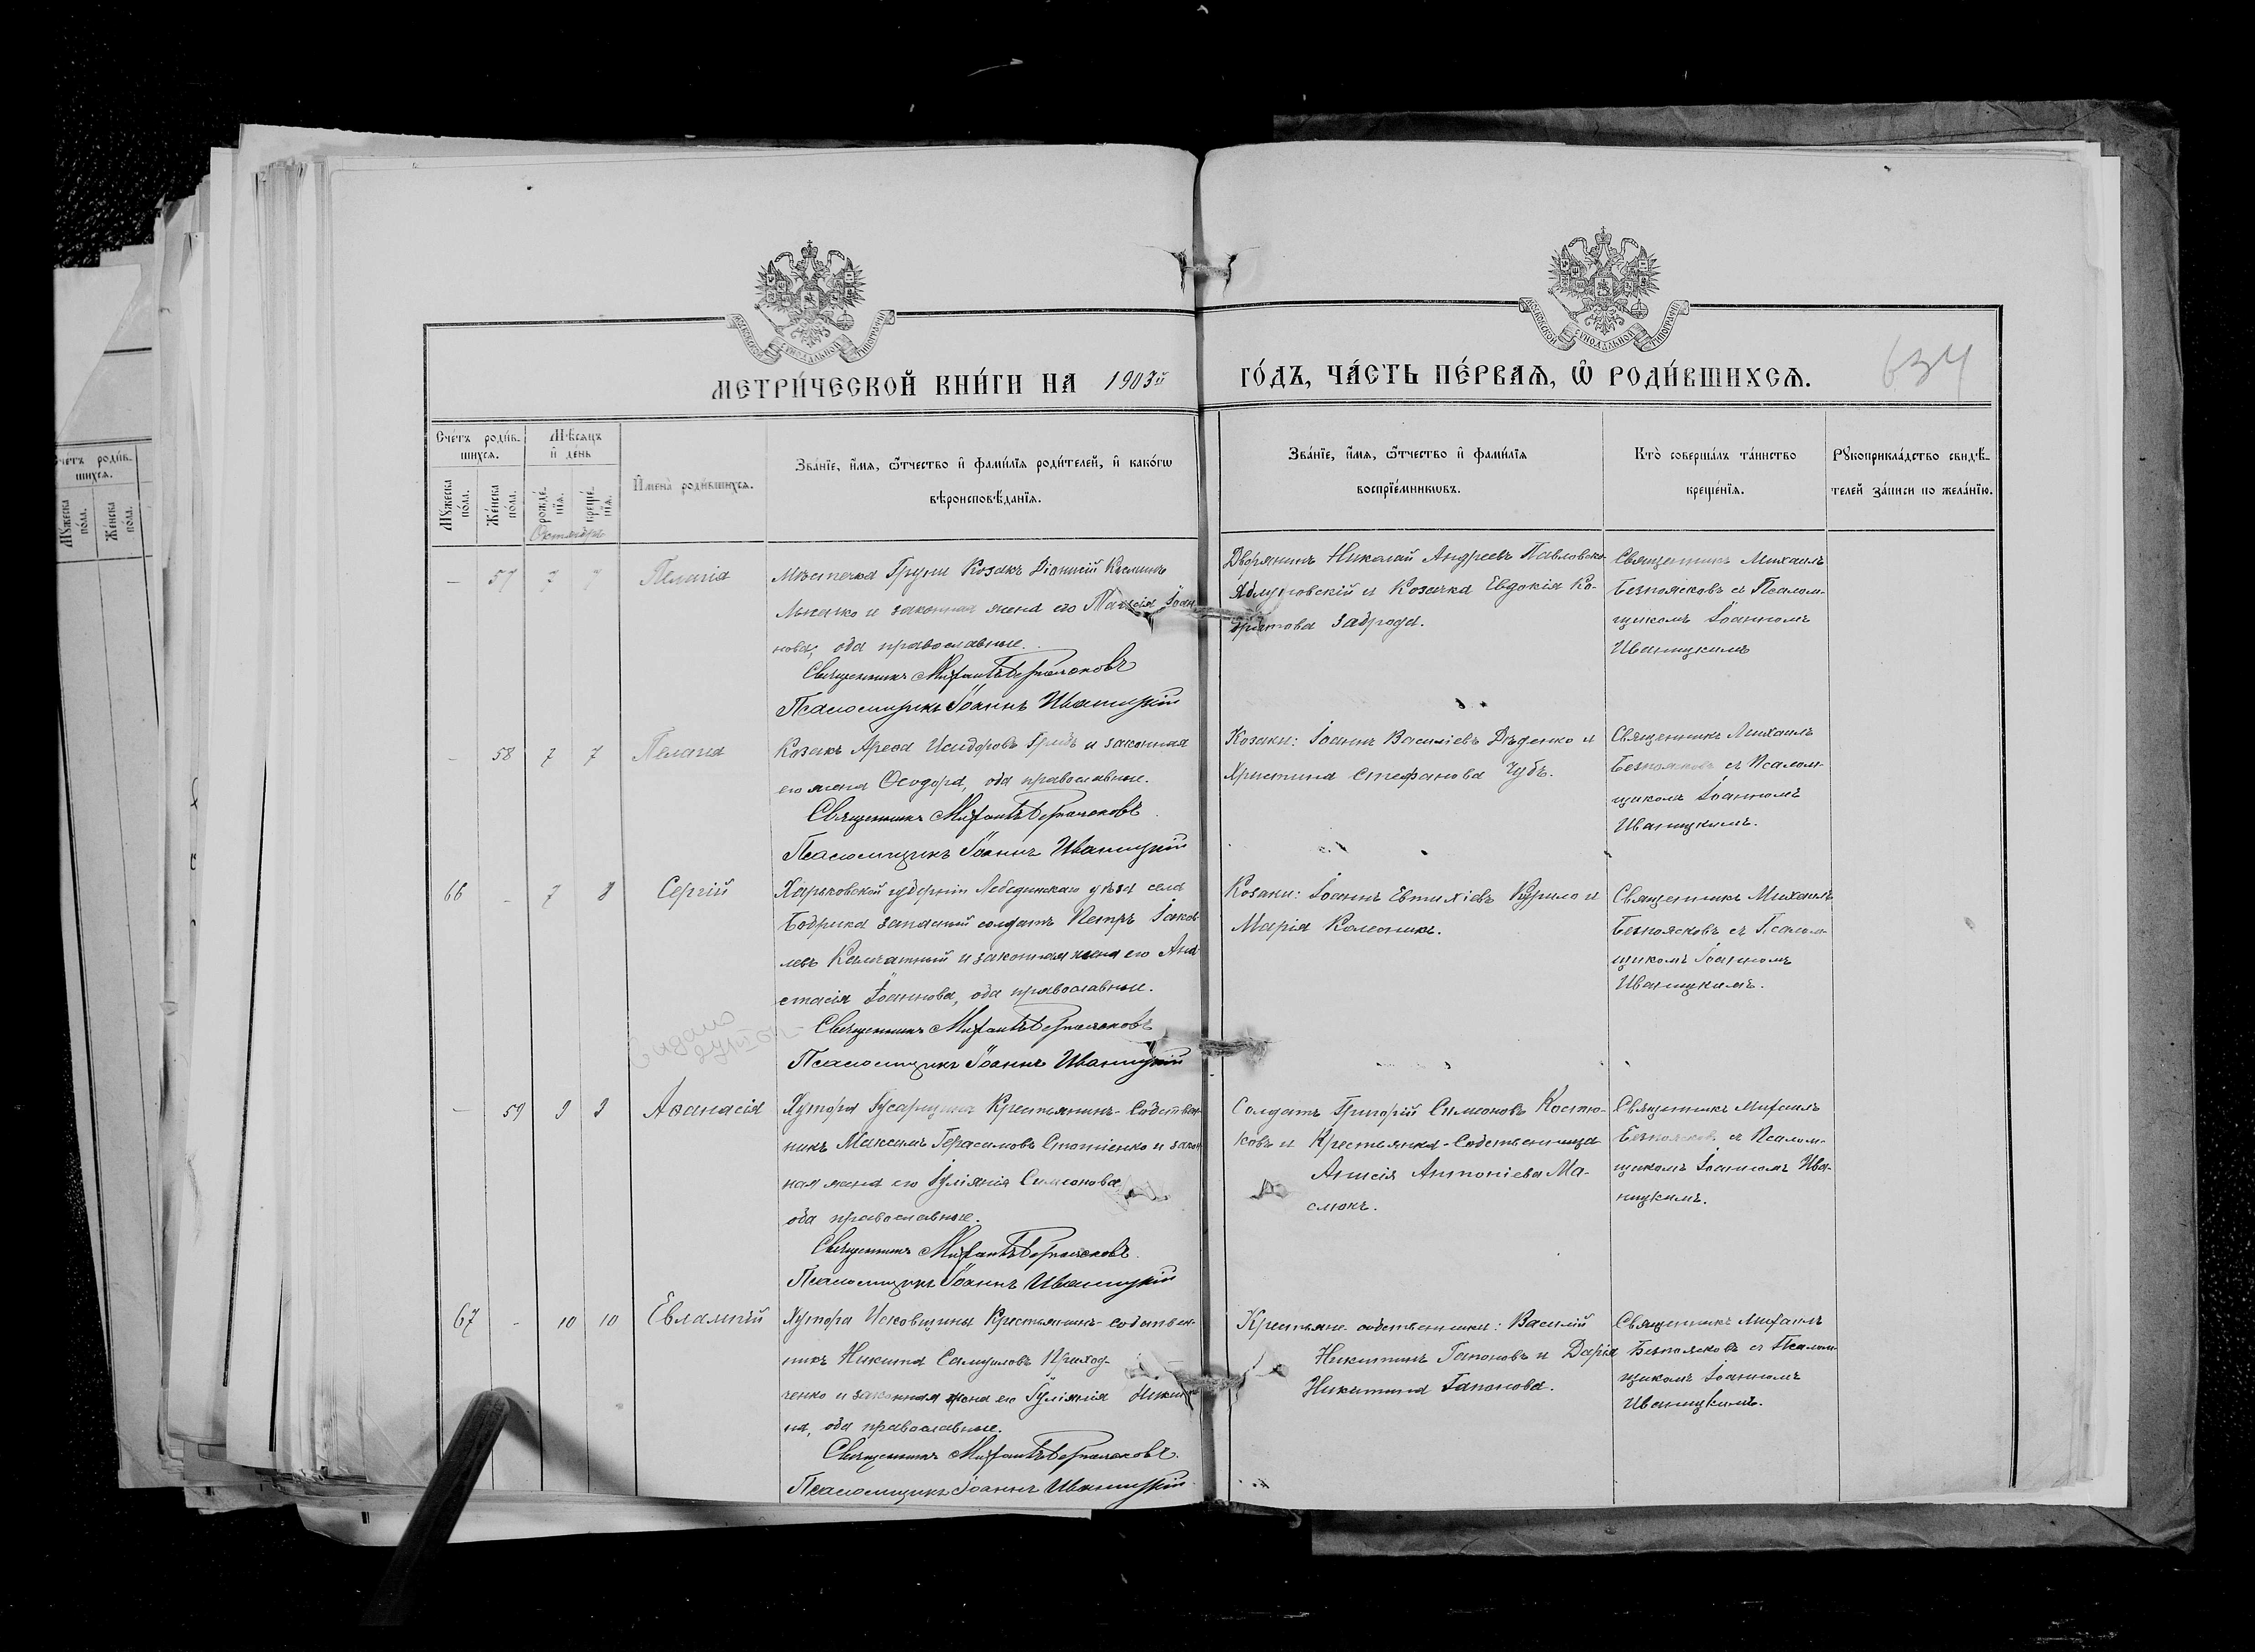 МОСКОВСКОЙ СѴНОДАЛЬНОЙ ТИПОГРАФІИ
МОСКОВСКОЙ СѴНОДАЛЬНОЙ ТИПОГРАФІИ
МЕТРИ́ЧЕСКОЙ КНИ́ГИ НА 1903й ГО́ДЪ, ЧА́СТЬ ПЕ́РВАѦ, Ѡ҆ РОДИ́ВШИХСѦ.
634
Сче́тъ роди́в-
шихсѧ.
Мꙋ́жеска
по́ла.
Же́нска
по́ла.
Мѣ́сѧцъ
и҆ де́нь
рожде́-
нїѧ.
креще́-
нїѧ.
Октября
И҆мена̀ роди́вшихсѧ.
Зва́нїе, и҆́мѧ, ѻ҆́тчество и҆ фами́лїѧ роди́телей, и҆ како́гѡ
вѣроисповѣ́данїѧ.
Зва́нїе, и҆́мѧ, ѻ҆́тчество и҆ фами́лїѧ
воспрїе́мникѡвъ.
Кто̀ соверша́лъ та́инство
креще́нїѧ.
Рꙋкоприкла́дство свидѣ́-
телей за́писи по жела́нїю.
— 57 7 7 Пелагія
Мѣстечка Груни Козакъ Діонисій
и законная жена его Іоан-
нова, оба православные.
Священникъ Михаилъ Безпоясковъ
Псаломщикъ Іоаннъ Иваницкій
Дворянинъ Николай Андреевъ Павловско-
и Козачка Евдокія Ко-
Заброда.
Священникъ Михаилъ
Безпоясковъ съ Псалом-
щикомъ Іоанномъ
Иваницкимъ
- 58 7 7 Пелагія
Козакъ Арефа Исидоровъ и законная
его жена Ѳеодора, оба православные.
Священникъ Михаилъ Безпоясковъ
Псаломщикъ Іоаннъ Иваницкій
Козаки: Іоаннъ Василіевъ и
Христина Стефанова Чубъ.
Священникъ Михаилъ
Безпоясковъ съ Псалом-
щикомъ Іоанномъ
Иваницкимъ.
66 - 7 8 Сергій
Харьковской губерніи Лебединскаго уѣзда села
Бобрика запасный солдатъ Петръ Іаков-
левъ и законная жена его Ана-
стасія Іоаннова, оба православные.
Священникъ Михаилъ Безпоясковъ
Псаломщикъ Іоаннъ Иваницкій
Козаки: Іоаннъ Евтихіевъ Курило и
Марія
Священникъ Михаилъ
Безпоясковъ съ Псалом-
щикомъ Іоанномъ
Иваницкимъ.
— 59 9 9 Аѳанасія
Хутора Крестьянинъ-Собствен-
никъ Максимъ Герасимовъ и закон-
ная жена его Іуліянія Симеонова
оба православные.
Священникъ Михаилъ Безпоясковъ
Псаломщикъ Іоаннъ Иваницкій
Солдатъ Григорій Симеоновъ Костю-
ковъ и Крестьянка-Собственница
Анисія Антоніева Ма-
слюкъ.
Священникъ Михаилъ
Безпоясковъ съ Псалом-
щикомъ Іоанномъ Ива-
ницкимъ.
67 - 10 10 Евлампій
Хутора Исковщины Крестьянинъ-собствен-
никъ Никита Самуиловъ Приход-
ченко и законная жена его Іуліянія Ники-
на, оба православные.
Священникъ Михаилъ Безпоясковъ.
Псаломщикъ Іоаннъ Иваницкій
Крестьяне собственники: Василій
Никитинъ Гапоновъ и Дарія
Никитина Гапонова.
Священникъ Михаилъ
Безпоясковъ съ Псалом-
щикомъ Іоанномъ
Иваницкимъ.